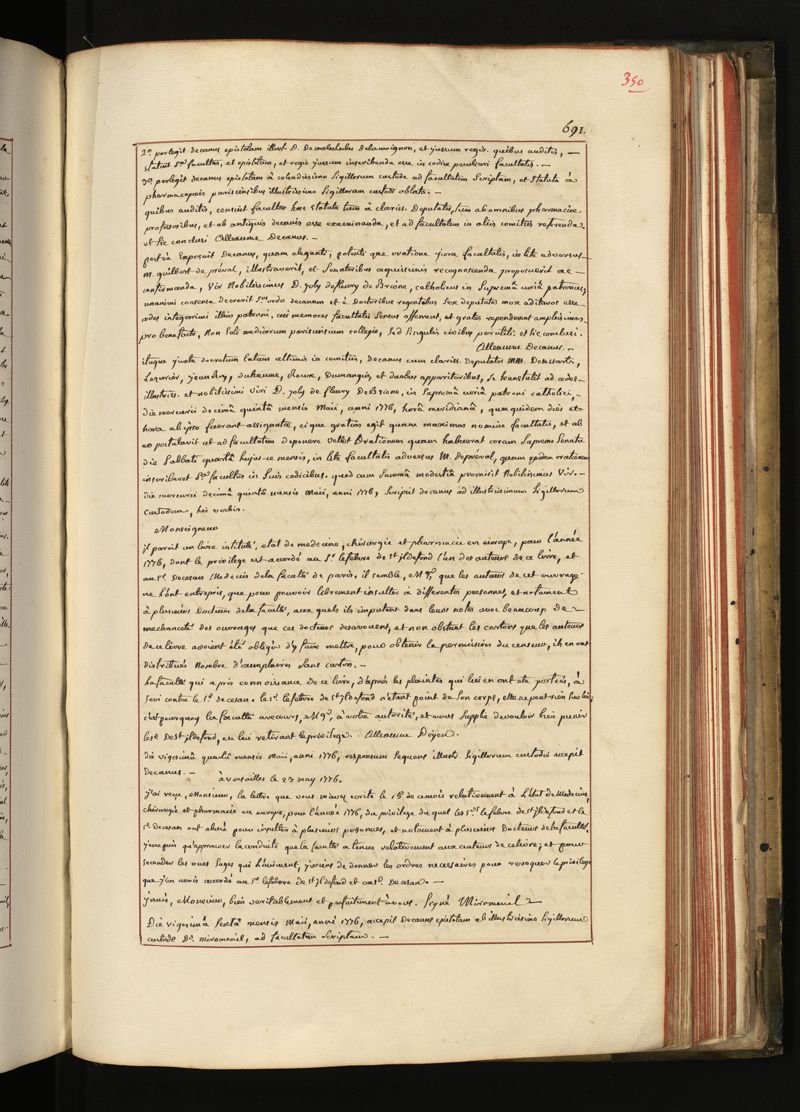 350
691.
2º perlegit decanus epistolam illust. D. De malesherbes Delamoignon, et jussum regis. quibus auditis, —
statuit S.ᵃ facultas, et epistolam, et regis jussum inscribenda esse in codice peculiari facultatis. —
3º perlegit decanus epistolam à colendissimo sigillorum custode ad facultatem scriptam, et statuta à
pharmacopæis parisiensibus illustrissimo sigillorum custodi oblata. —
quibus auditis, censuit facultas hæc statuta tum à clariss. Deputatis, tum ab omnibus pharmaciæ
professoribus, et ab antiquis decanis esse examinanda, et ad facultatem in aliis comitiis referenda.
et sic conclusi Alleaume Decanus. —
postea Exposuit Decanus, quam eleganti, potenti que oratione jura facultatis, in lite adversus
M. guilbert de préval, illustraverit, et senatoribus æquissimis recognoscenda proposuerit ac —
confirmanda, Vir Nobilissimus D. joly defleury de Brione, catholicus in supremâ curiâ patronus,
unanimi consensu decrevit S.ᵉʳ ordo decanum et è Doctoribus regentibus sex deputatos mox adituros esse
ædes integerrimi illius patroni, cui memores facultatis sensus offerrent, et grates rependerent amplissimas
pro benefacto, non soli medicorum parisiensium collegio, sed singulis civibus perutili. et sic conclusi.
Alleaume Decanus. —
itaque juxta decretum latum ultimis in comitiis, decanus cum clariss. Deputatis MM. Desessartz,
Lezurier, jeanRoy, duhaume, Roux, Demangin, et duobus apparitoribus, se transtulit ad ædes
illustriss. et nobilissimi viri D. joly de fleury De Brione, in supremâ curiâ patroni catholici, —
die mercurii decimâ quintâ mensis Maii, anni 1776, horâ meridianâ, quæ quidem dies et
hora ab ipso fuerant assignatæ, ei que gratias egit quam maximas nomine facultatis, et ab
eo postulavit ut ad facultatem deponere vellet Orationem quam habuerat coram supremo Senatu
die sabbati quartâ hujusce mensis, in lite facultatis adversus M. Depreval, quam quidem orationem
inscriberet S.ᵃ facultas in suis codicibus. quod cum summâ modestiâ promisit Nobilissimus Vir. —
die mercurii decimâ quintâ mensis Maii, anni 1776, scripsit decanus ad illustrissimum sigillorum
custodem, his verbis.
Monseigneur
il paroit un livre intitulé, etat de medecine, chirurgie et pharmacie en europe, pour l'année
1776, dont le privilege est accordé au S.ʳ lefebvre de S.ᵗ jldefond l'un des auteurs de ce livre, et
au S.ʳ Decesan Medecin dela faculté de paris, il semble, M.ᵍʳ que les auteurs de cet ouvrage
ne l'ont entrepris, que pour pouvoir librement insulter à differentes personnes, et notament
à plusieurs Docteurs dela faculté, aux quels ils imputent dans leurs notes avec beaucoup de —
mechanceté des ouvrages que ces docteurs desavouent, et non obstant les cartons que les auteurs
de ce livre avoient été obligés d'y faire mettre, pour obtenir la permission du censeur, ils en ont
distribués Nombre d'exemplaires sans carton. —
la faculté qui a pris connoissance de ce livre, d'après les plaintes qui lui en ont été portées, a
sevi contre le S.ʳ de cesan. le S.ʳ lefebvre de S.ᵗ jldefond n'etant point de son corps, elle ne peut rien sur lui;
c'est pourquoy la faculté a recours, M.ᵍʳ, à votre autorité, et vous supplie de vouloir bien punir
le S.ʳ De S.ᵗ jldefond, en lui retirant le privilege. Alleaume Doyen.
die vigesimâ quartâ mensis Maii, anni 1776, responsum sequens illustr. sigillorum custodis accepit
decanus. — à versailles le 23 may 1776.
j'ai reçu, Monsieur, la lettre que vous m'avez ecrite le 15 de ce mois relativement à l'état de Medecine,
chirurgie et pharmacie en europe, pour l'année 1776, du privilege du quel les S.ʳˢ lefebvre de S.ᵗ jldefond et le
S.ʳ decesan ont abusé pour insulter à plusieurs personnes, et notament à plusieurs Docteurs dela faculté,
je ne puis qu'approuver la conduite que la faculté a tenue relativement aux auteurs de ce livre; et pour
seconder les vues sages qui l'animent, je viens de donner les ordres necessaires pour revoquer le privilege
que j'en avois accordé au S.ʳ lefebvre de S.ᵗ jldefond et au S.ʳ Decesan. —
je suis, Monsieur, bien veritablement et parfaitement à vous. Signé Miromenil
Die vigesimâ sextâ mensis Maii, anni 1776, accepit Decanus epistolam ab illustrissimo sigillorum
custode D.º miromenil, ad facultatem scriptam. —